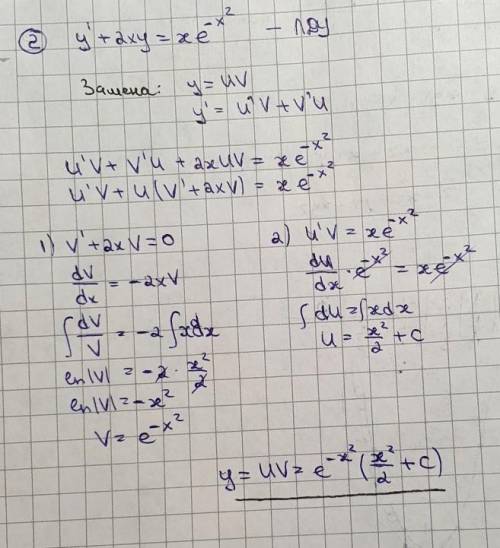 ② y' + 2xy = xe^{-x²} - ЛДУ
Замена: y = UV
y' = U'V + V'U
U'V + V'U + 2xUV = xe^{-x²}
U'V + U(V' + 2xV) = xe^{-x²}
1) V' + 2xV = 0
dV/dx = -2xV
∫ dV/V = -2∫xdx
ln|V| = -2 · x²/2
ln|V| = -x²
V = e^{-x²}
2) U'V = xe^{-x²}
dU/dx · e^{-x²} = xe^{-x²}
∫dU = ∫xdx
U = x²/2 + C
y = UV = e^{-x²}(x²/2 + C)